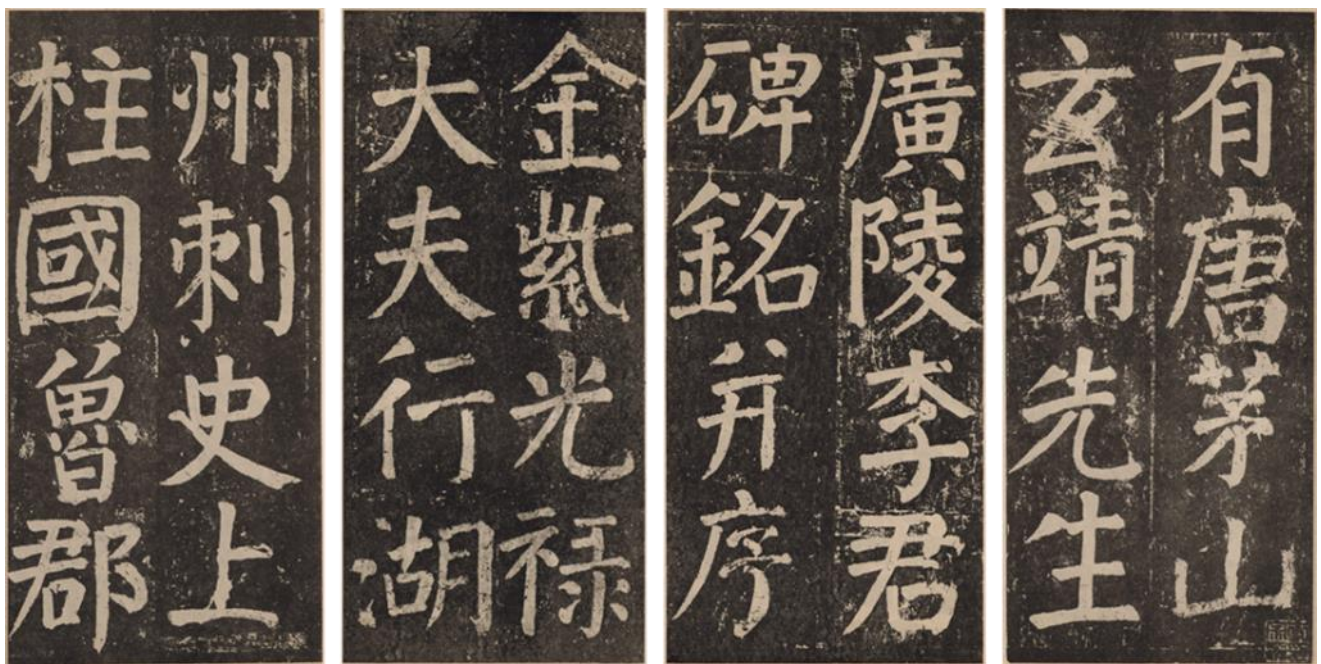 有唐茅山
玄靖先生
廣陵李君
碑銘并序
金紫光禄
大夫行湖
州刺史上
柱國魯郡